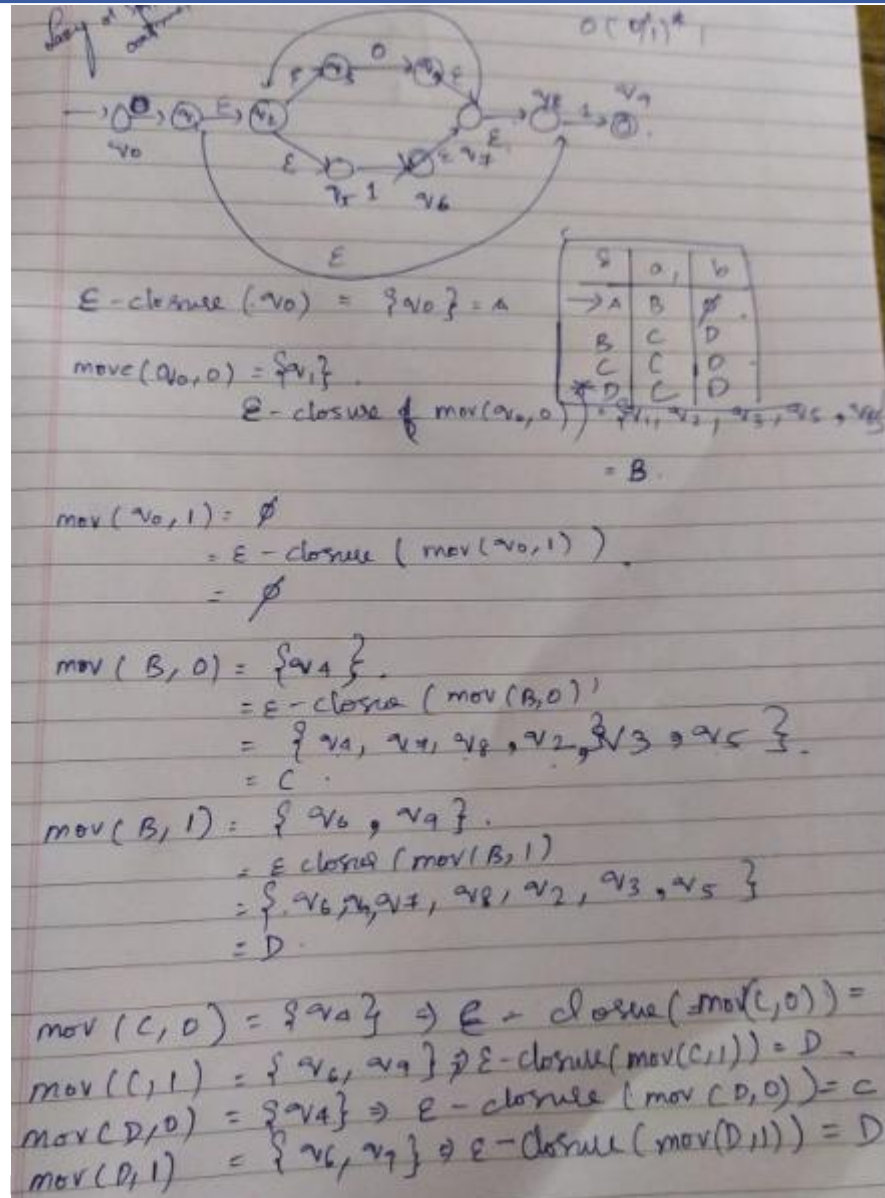 0(0/1)* 1
0
ε
ε
q0
q2
ε
q8
1
q9
ε
q5
1
q6
ε
q7
ε
ε
δ | a, | b
→A | B | ∅.
B | C | D
C | C | D
*D | C | D
ε-closure (q0) = {q0} = A
move(q0,0) = {q1}.
ε-closure of mov(q0,0)) = {q1, q2, q3, q5, q8}
= B.
mov(q0,1) = ∅
= ε-closure ( mov(q0,1) ).
= ∅
mov(B,0) = {q4}.
= ε-closure (mov(B,0))
= { q4, q7, q8, q2,}q3, q5 }.
= C.
mov(B,1) = { q6, q9 }.
= ε closure (mov(B,1)
= { q6, q7, q8, q2, q3, q5 }
= D.
mov (C,0) = {q4} ⇒ ε-closure(mov(C,0)) =
mov(C,1) = {q6, q9} ⇒ ε-closure(mov(C,1)) = D
mov(D,0) = {q4} ⇒ ε-closure (mov(D,0)) = C
mov(D,1) = {q6, q9} ⇒ ε-closure(mov(D,1)) = D